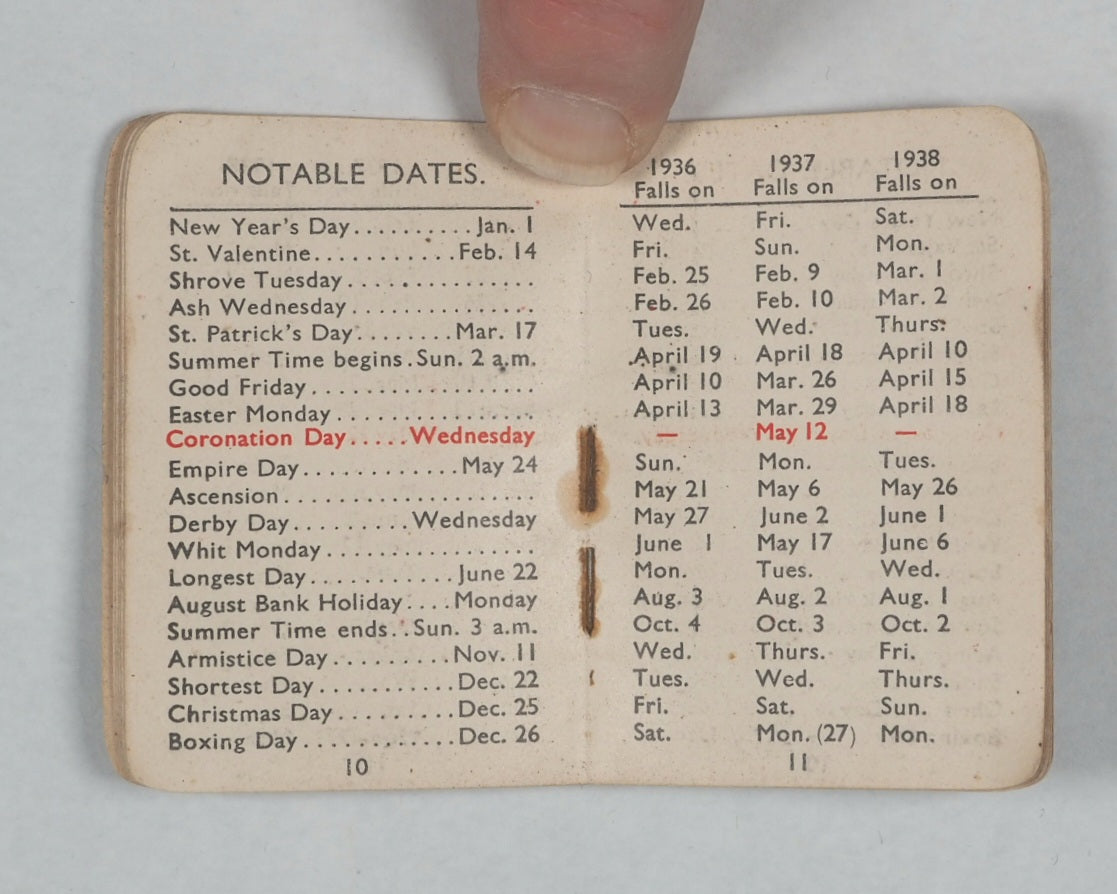 NOTABLE DATES.
New Year's Day..........Jan. 1
St. Valentine............Feb. 14
Shrove Tuesday................
Ash Wednesday................
St. Patrick's Day........Mar. 17
Summer Time begins.Sun. 2 a.m.
Good Friday...................
Easter Monday.................
Coronation Day.....Wednesday
Empire Day............May 24
Ascension.....................
Derby Day.........Wednesday
Whit Monday..................
Longest Day...........June 22
August Bank Holiday....Monday
Summer Time ends..Sun. 3 a.m.
Armistice Day.........Nov. 11
Shortest Day...........Dec. 22
Christmas Day.........Dec. 25
Boxing Day............Dec. 26
10
1936 1937 1938
Falls on Falls on Falls on
Wed. Fri. Sat.
Fri. Sun. Mon.
Feb. 25 Feb. 9 Mar. 1
Feb. 26 Feb. 10 Mar. 2
Tues. Wed. Thurs.
April 19 April 18 April 10
April 10 Mar. 26 April 15
April 13 Mar. 29 April 18
— May 12 —
Sun. Mon. Tues.
May 21 May 6 May 26
May 27 June 2 June 1
June 1 May 17 June 6
Mon. Tues. Wed.
Aug. 3 Aug. 2 Aug. 1
Oct. 4 Oct. 3 Oct. 2
Wed. Thurs. Fri.
Tues. Wed. Thurs.
Fri. Sat. Sun.
Sat. Mon. (27) Mon.
11